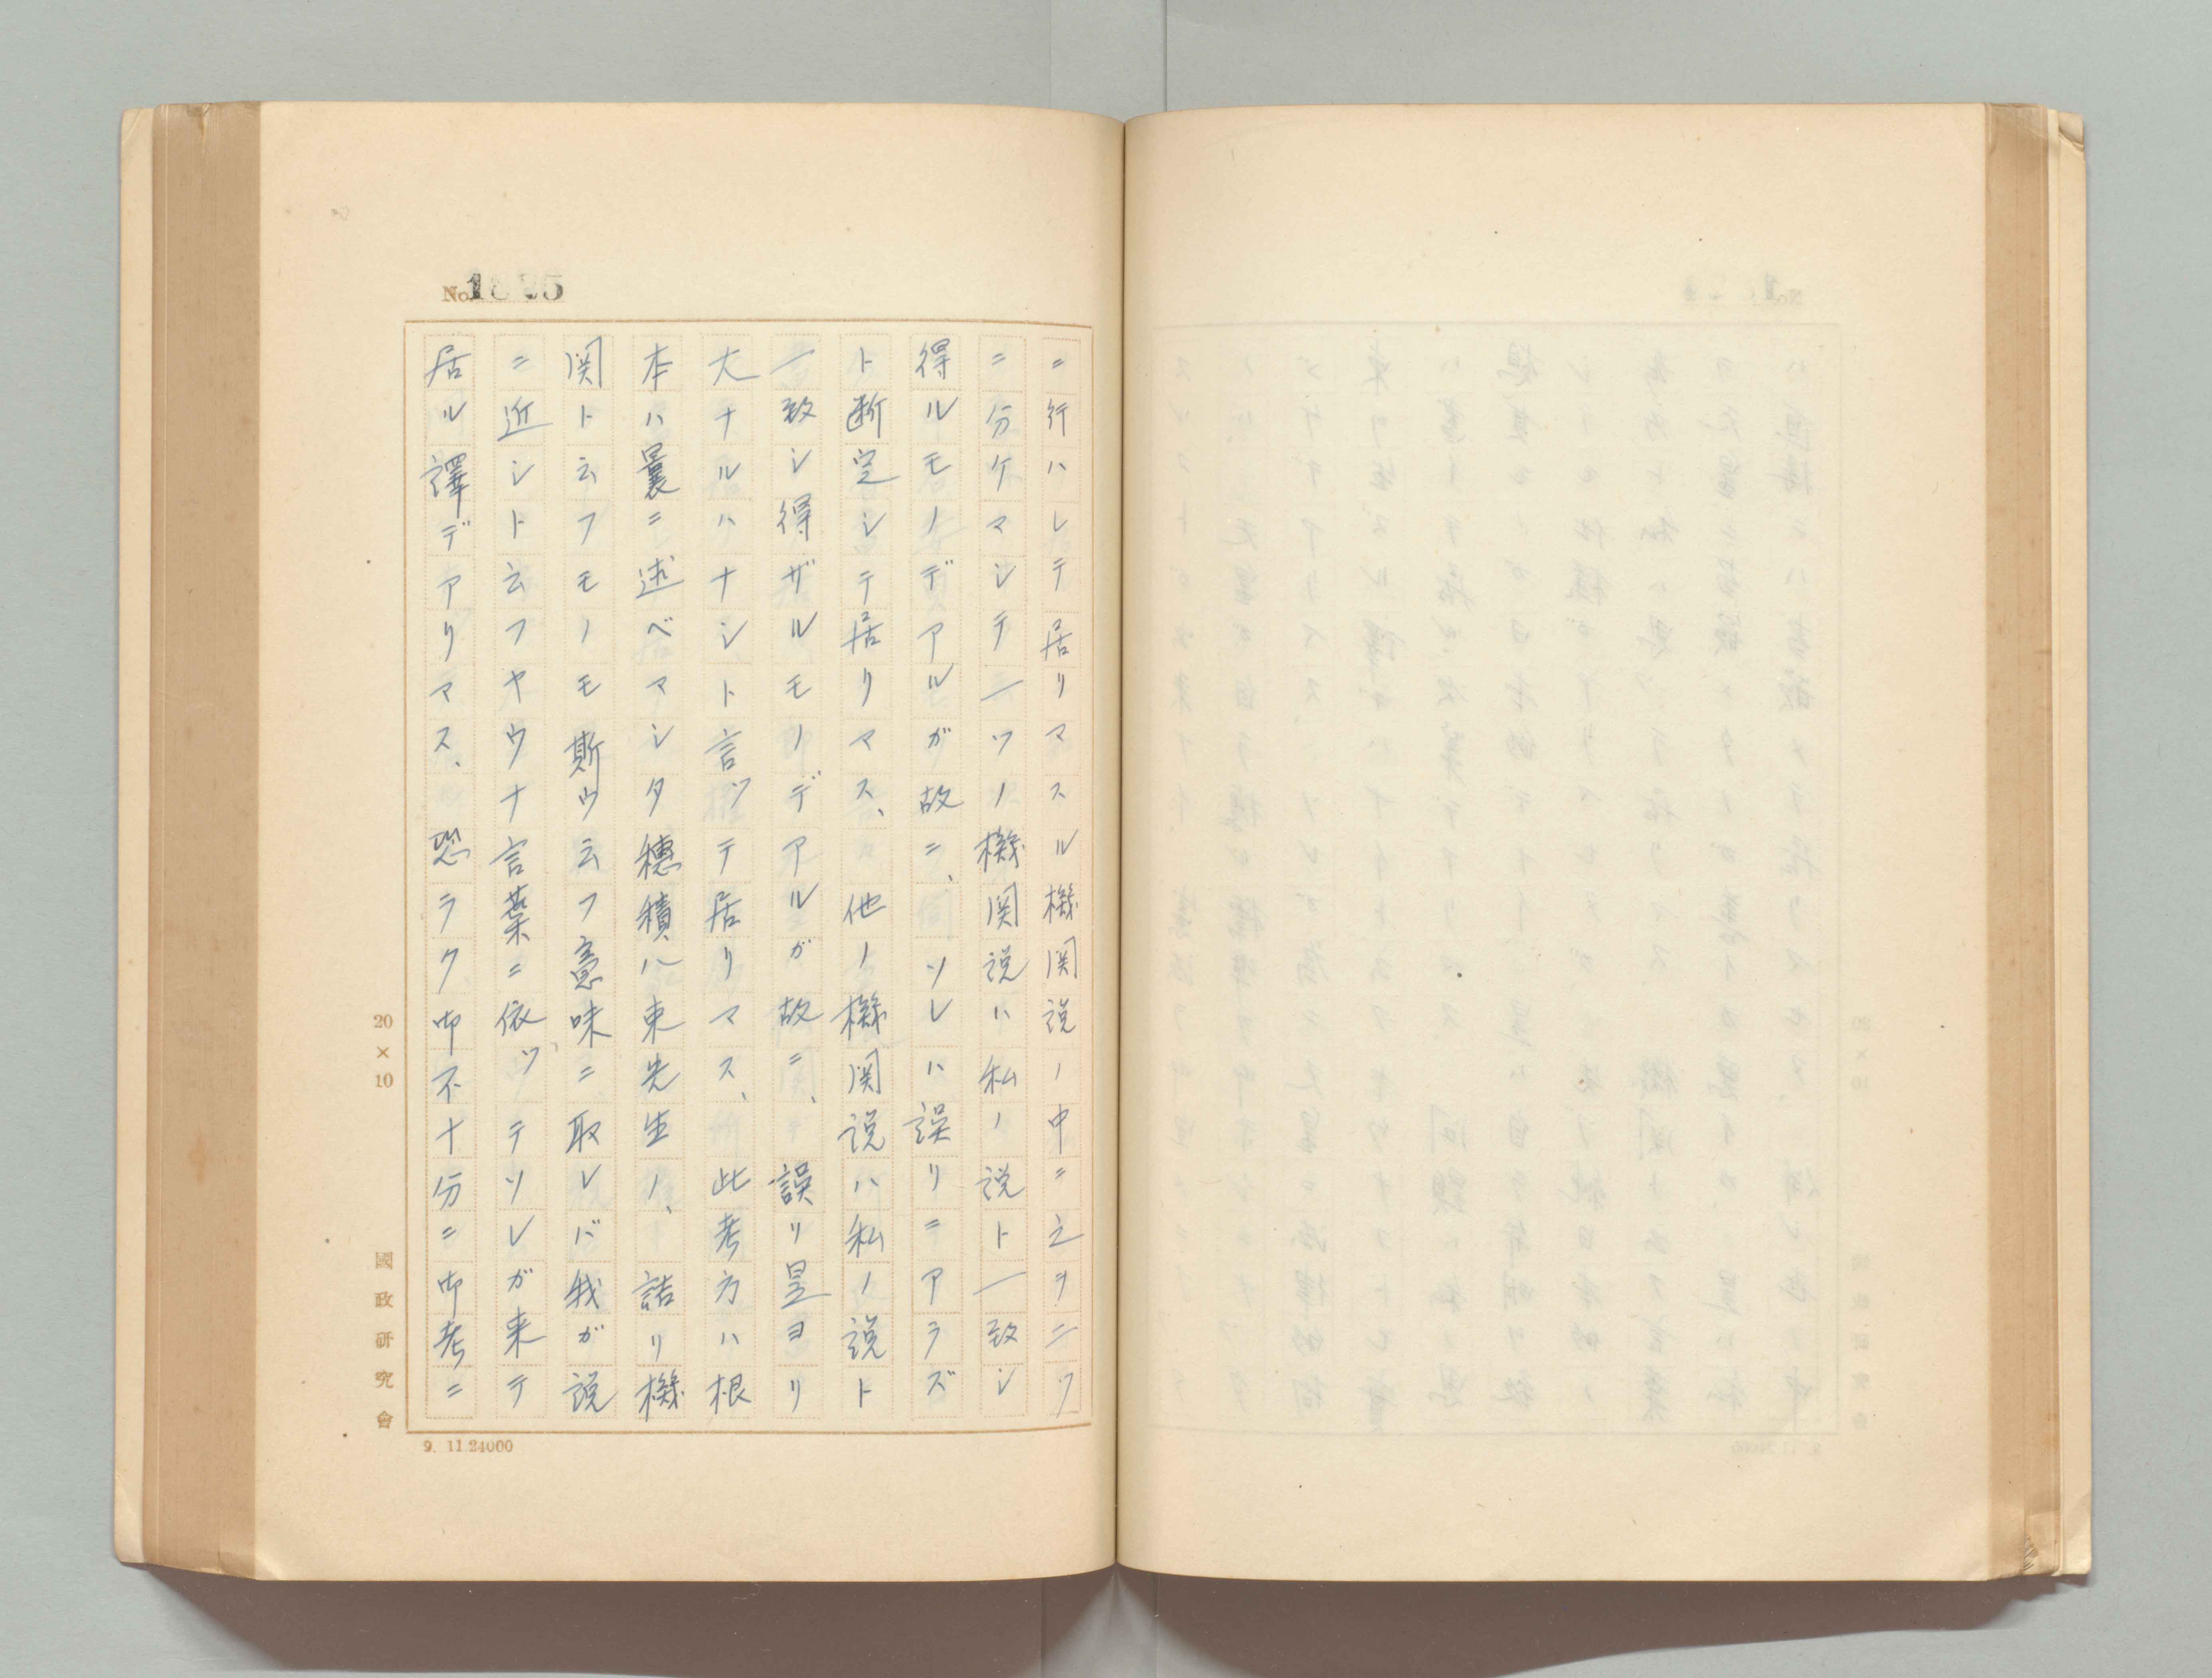 ニ行ハレテ居リマスル機関説ノ中ニ之ヲ二ツ
ニ分ケマシテ一ツノ機関説ハ私ノ説ト一致シ
得ルモノデアルガ故ニ、ソレハ誤リニアラズ
ト断定シテ居リマス、他ノ機関説ハ私ノ説ト
一致シ得ザルモノデアルガ故ニ、誤リ是ヨリ
大ナルハナシト言ッテ居リマス、此考方ハ根
本ハ曩ニ述ベマシタ穂積八束先生ノ、詰リ機
関ト云フモノモ斯ウ云フ意味ニ取レバ我ガ説
ニ近シト云フヤウナ言葉ニ依ッテソレガ来テ
居ル譯デアリマス、恐ラク御不十分ニ御考ニ
20×10
國政研究會
9. 11.24000